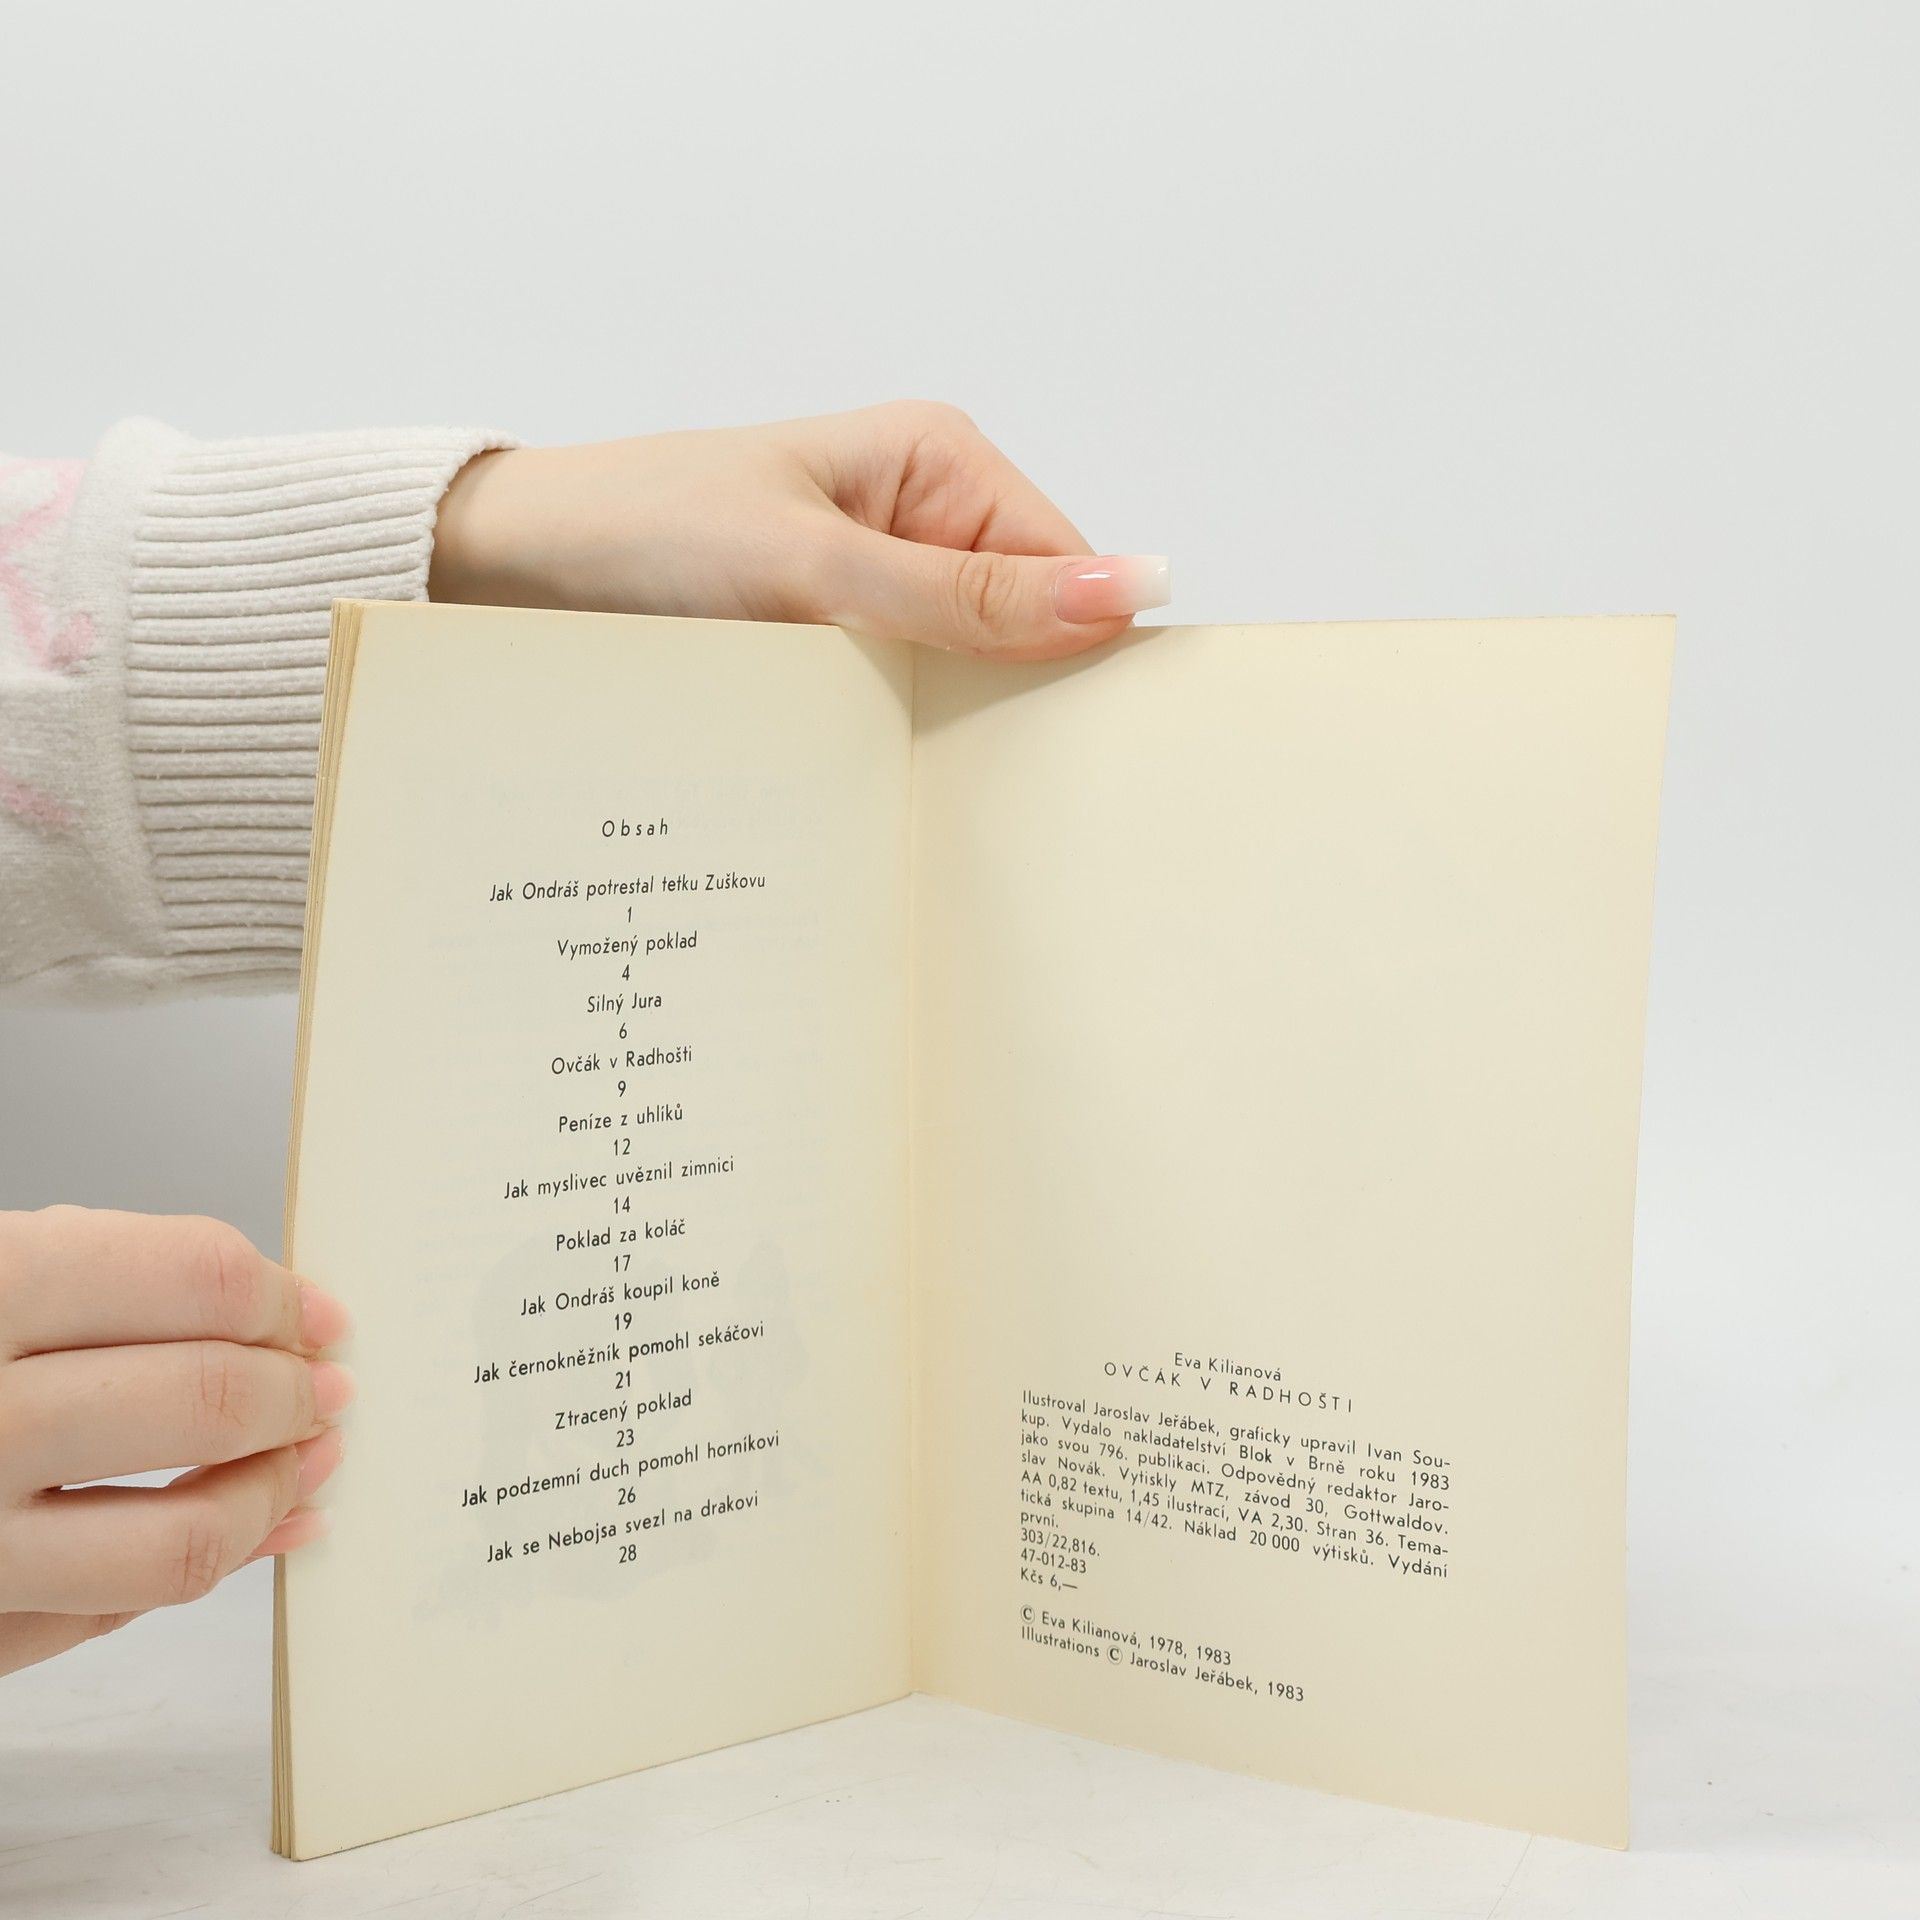 Obsah
Jak Ondráš potrestal tetku Zuškovu
1
Vymožený poklad
4
Silný Jura
6
Ovčák v Radhošti
9
Peníze z uhlíků
12
Jak myslivec uvěznil zimnici
14
Poklad za koláč
17
Jak Ondráš koupil koně
19
Jak černokněžník pomohl sekáčovi
21
Ztracený poklad
23
Jak podzemní duch pomohl horníkovi
26
Jak se Nebojsa svezl na drakovi
28
Eva Kilianová
OVČÁK V RADHOŠTI
Ilustroval Jaroslav Jeřábek, graficky upravil Ivan Sou-
kup. Vydalo nakladatelství Blok v Brně roku 1983
jako svou 796. publikaci. Odpovědný redaktor Jaro-
slav Novák. Vytiskly MTZ, závod 30, Gottwaldov.
AA 0,82 textu, 1,45 ilustrací, VA 2,30. Stran 36. Tema-
tická skupina 14/42. Náklad 20 000 výtisků. Vydání
první.
303/22,816.
47-012-83
Kčs 6,—
© Eva Kilianová, 1978, 1983
Illustrations © Jaroslav Jeřábek, 1983